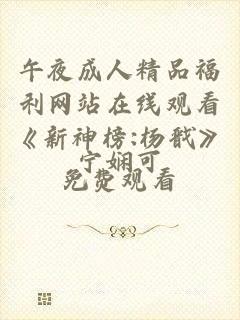 午夜成人精品福
利网站在线观看
《新神榜:杨戬》
宁娴可
免费观看